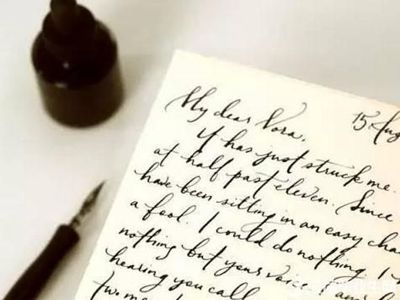 My dear Nora,
15 Aug
It has just struck me.
at half past eleven. Since
have been sitting in an easy chai
a fool. I could do nothing. I
nothing but your voic
hearing you call
two me